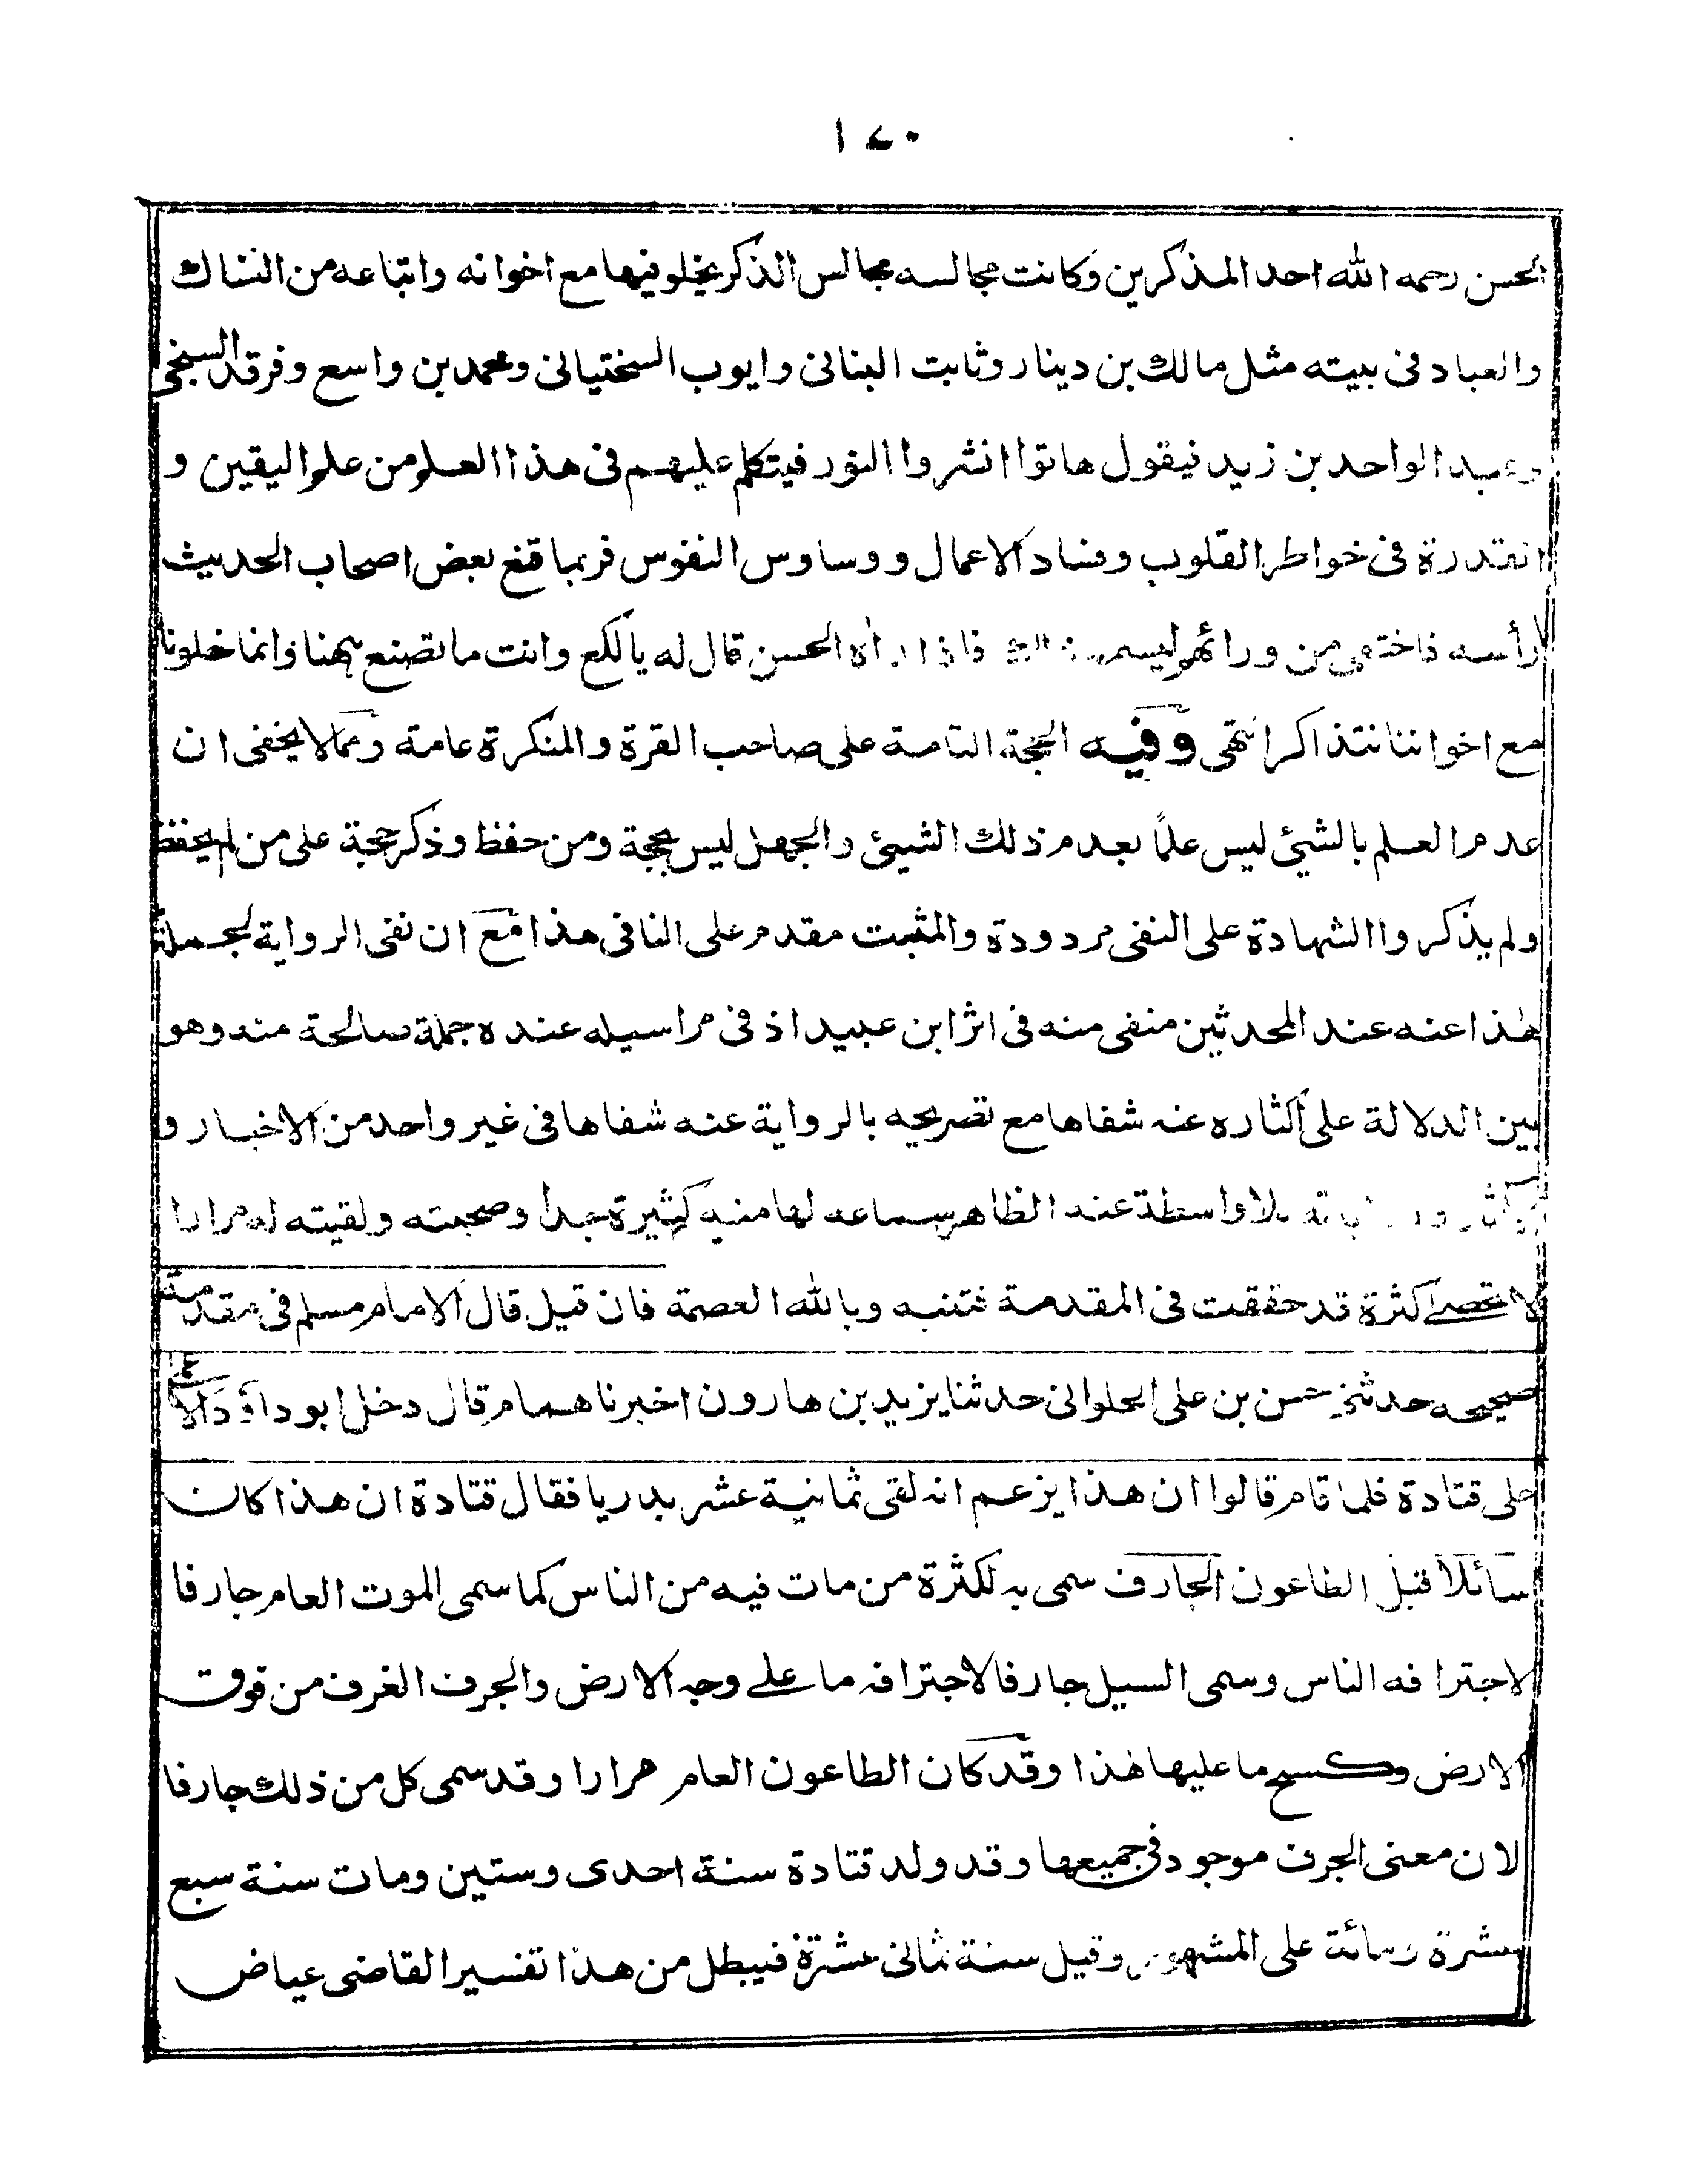 ١٤٠
الحسن رحمه الله احد المذكرين وكانت مجالسه مجالس الذكر يخلو فيها مع اخوانه واتباعه من النساك
والعباد فى بيته مثل مالك بن دينار وثابت البنانى وايوب السختيانى ومحمد بن واسع وفرقد السبخى
وعبد الواحد بن زيد فيقول هاتوا انشروا النور فيتكلم عليهم فى هذا العلم من علم اليقين و
القدرة فى خواطر القلوب وفساد الاعمال ووساوس النفوس فربما قنع بعض اصحاب الحديث
رأسه فاختفى من ورائهم ليسمع ذلك فاذا راٰه الحسن قال له يالكع وانت ما تصنع ههنا وانما خلونا
مع اخواننا نتذاكر انتهى وفيه الحجة التامة على صاحب القرة والمنكرة عامة ومما لا يخفى ان
عدم العلم بالشيئ ليس علمًا بعدم ذلك الشيئ والجهل ليس بحجة ومن حفظ وذكر حجة على من لم يحفظ
ولم يذكر والشهادة على النفى مردودة والمثبت مقدم على النافى هذا مع ان نفى الرواية لجملة
هٰذا عنه عند المحدثين منفى منه فى اثر ابن عبيد اذ فى مراسيله عنده جملة صالحة منه وهو
بين الدلالة على اكثاره عنه شفاها مع تصريحه بالرواية عنه شفاها فى غير واحد من الاخبار و
بلاواسطة عند الظاهر سماعه لها منه كثيرة جدا وصحبته ولقيته له مرارا
لا تحصى كثرة قد حققت فى المقدمة فتنبه وبالله العصمة فان قيل قال الامام مسلم فى مقدمة
صحيحه حدثنى حسن بن على الحلوانى حدثنا يزيد بن هارون اخبرنا همام قال دخل ابو داؤد الاعمى
على قتادة فلما قام قالوا ان هذا يزعم انه لقى ثمانية عشر بدريا فقال قتادة ان هذا كان
سائلا قبل الطاعون الجارف سمى به لكثرة من مات فيه من الناس كما سمى الموت العام جارفا
لاجترافه الناس وسمى السيل جارفا لاجترافه ما على وجه الارض والجرف الغرف من فوق
الارض وكسح ما عليها هٰذا وقد كان الطاعون العام مرارا وقد سمى كل من ذلك جارفا
لان معنى الجرف موجود فى جميعها وقد ولد قتادة سنة احدى وستين ومات سنة سبع
عشرة ومائة على المشهور وقيل سنة ثمانى عشرة فيبطل من هذا تفسير القاضى عياض